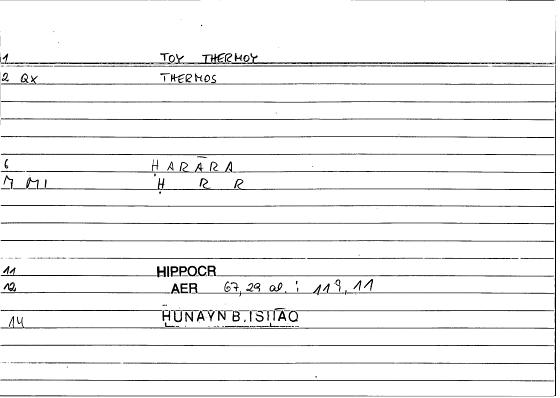 1 TOY THERMOY
2 QX THERMOS
6 ḤARĀRA
7 MI Ḥ R R
11 HIPPOCR
12 AER 67,29 al. ; 119,11
14 ḤUNAYN B. ISḤĀQ